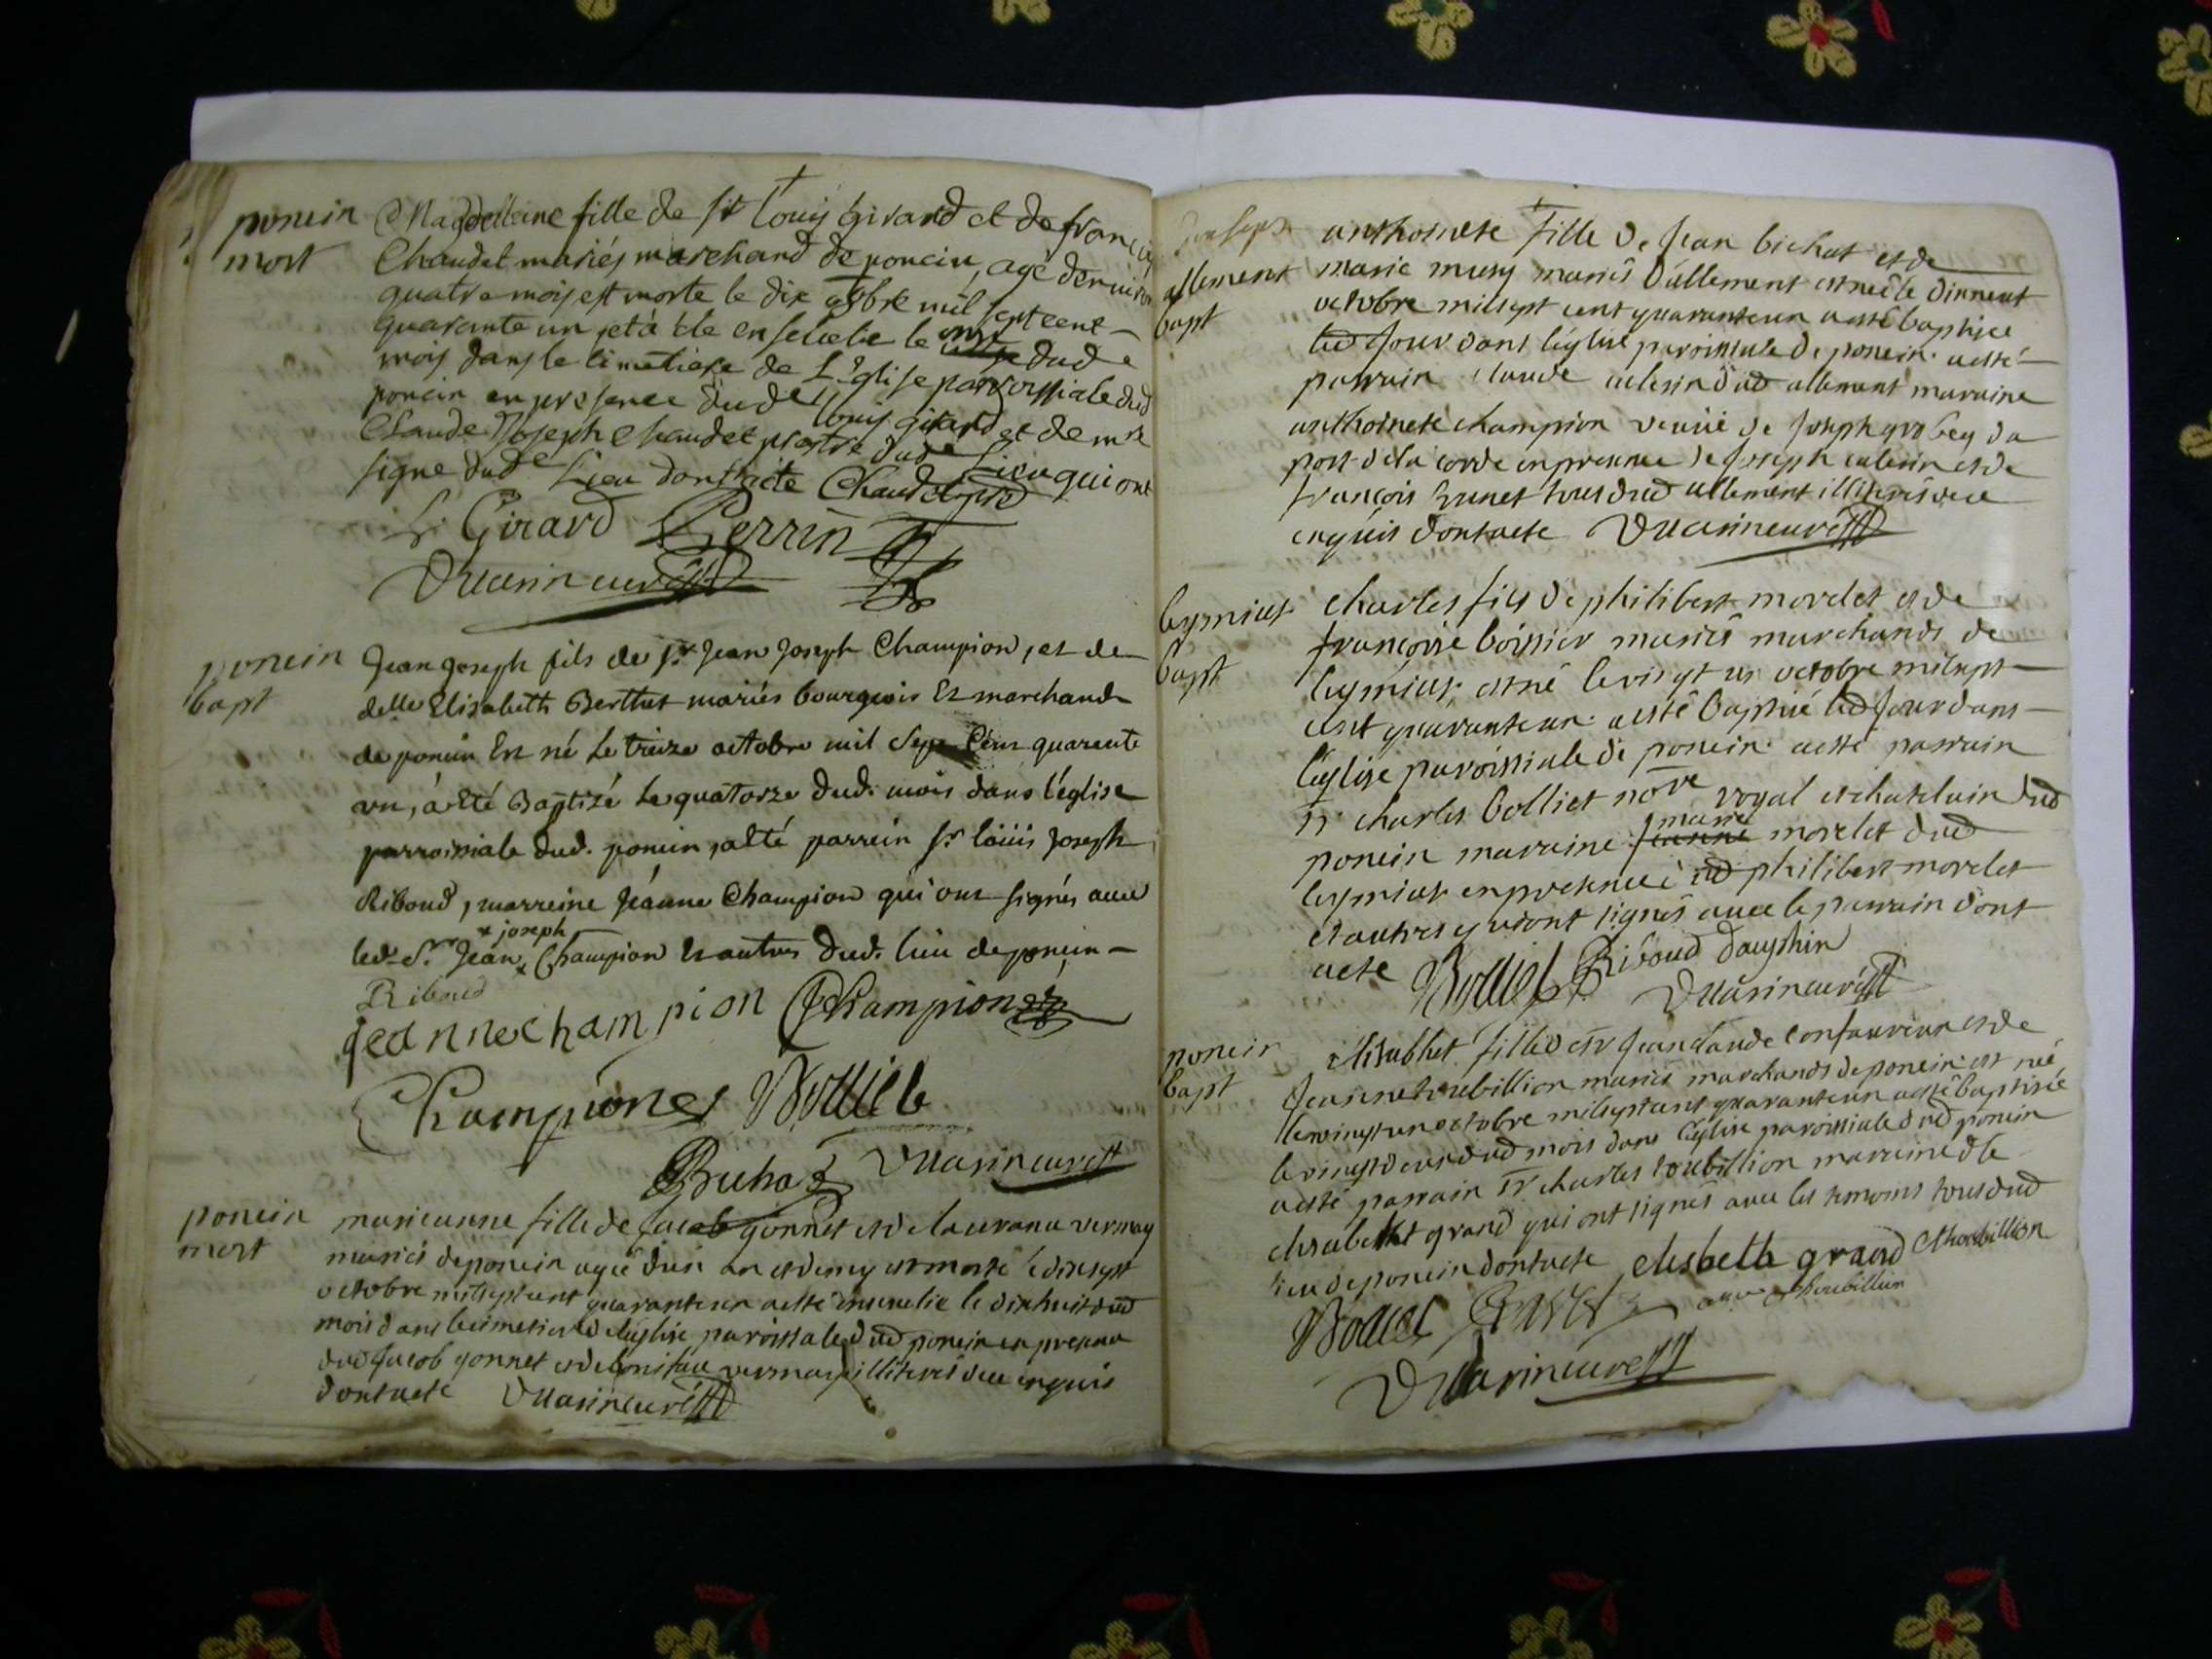 poncin
mort
Magdelaine fille de sr Louis Girard et de françoise
Chaudet mariés marchand de poncin, agé denviron
quatre mois est morte le dix 8bre mil sept cent
quarante un et a été ensevelie le onze dud
mois dans le cimetiere de L'Eglise parroissiale dud
poncin en presence dud louis girard et de mre
Claude Joseph Chaudet prestre dud Lieu qui ont
signe dud Lieu dont acte Chaudet
L. Girard Perrin
poncin
bapt
Jean Joseph fils de sr Jean Joseph Champion, et de
delle Elisabeth Berthet mariés bourgeois Et marchand
de poncin Est né Le treize octobre mil Sept Cent quarente
un, a Eté Baptizé Le quatorze dud. mois dans l'église
parroissiale dud. poncin, a Eté parrein sr loüis Joseph
Riboud, marreine Jeanne Champion qui ont signés avec
led. Sr Jean x joseph x Champion Et autres dud. lieu de poncin
Riboud
jeanne champion JChampion
Champion Bolliet
Buchaz
poncin
mort
marieanne fille de Jacob gonnet et de laurance vermay
mariés de poncin agée d'un an et demy est morte le dixsept
octobre milseptcent quaranteun a esté ensevelie le dixhuit dud
mois dans le cimetiere de l'église paroissiale dud poncin en presence
dud Jacob gonnet et de bonifau vermay illiterés de ce enquis
dont acte
allement
bapt
anthoinete fille de Jean bichat et de
marie musy mariés d'allement est née le dixneuf
octobre milsept cent quaranteun a esté baptisée
led Jour dans l'église paroissiale de poncin. a esté
parrain claude culesin dud allement maraine
anthoinete champion veuve de Joseph grobey du
port de la corde en presence de Joseph culesin et de
françois brunet tous dud allement illiterés de ce
enquis dont acte
leymiat
bapt
charles fils de philibert morelet et de
françoise boissier mariés marchands de
leymiat est né le vingt un octobre milsept
cent quaranteun a esté baptisé led Jour dans
l'église paroissiale de poncin. a esté parrain
sr charles bolliet nore royal et chatelain dud
poncin maraine marie morelet dud
leymiat en presence dud philibert morelet
et autres qui ont signés avec le parrain dont
acte Bolliet Riboud dauphin
poncin
bapt
elisabhet fille de sr Jean claude confavreux et de
Jeanne toubillion mariés marchands de poncin est née
le vingtun octobre milseptcent quaranteun a esté baptisée
le vingtdeux dud mois dans l'église paroissiale dud poncin
a esté parrain sr charles toubillion maraine dlle
elisabethet grand qui ont signés avec les temoins tous dud
lieu de poncin dont acte elesbeth grand Cthoubillion
Bolliet thoubillion